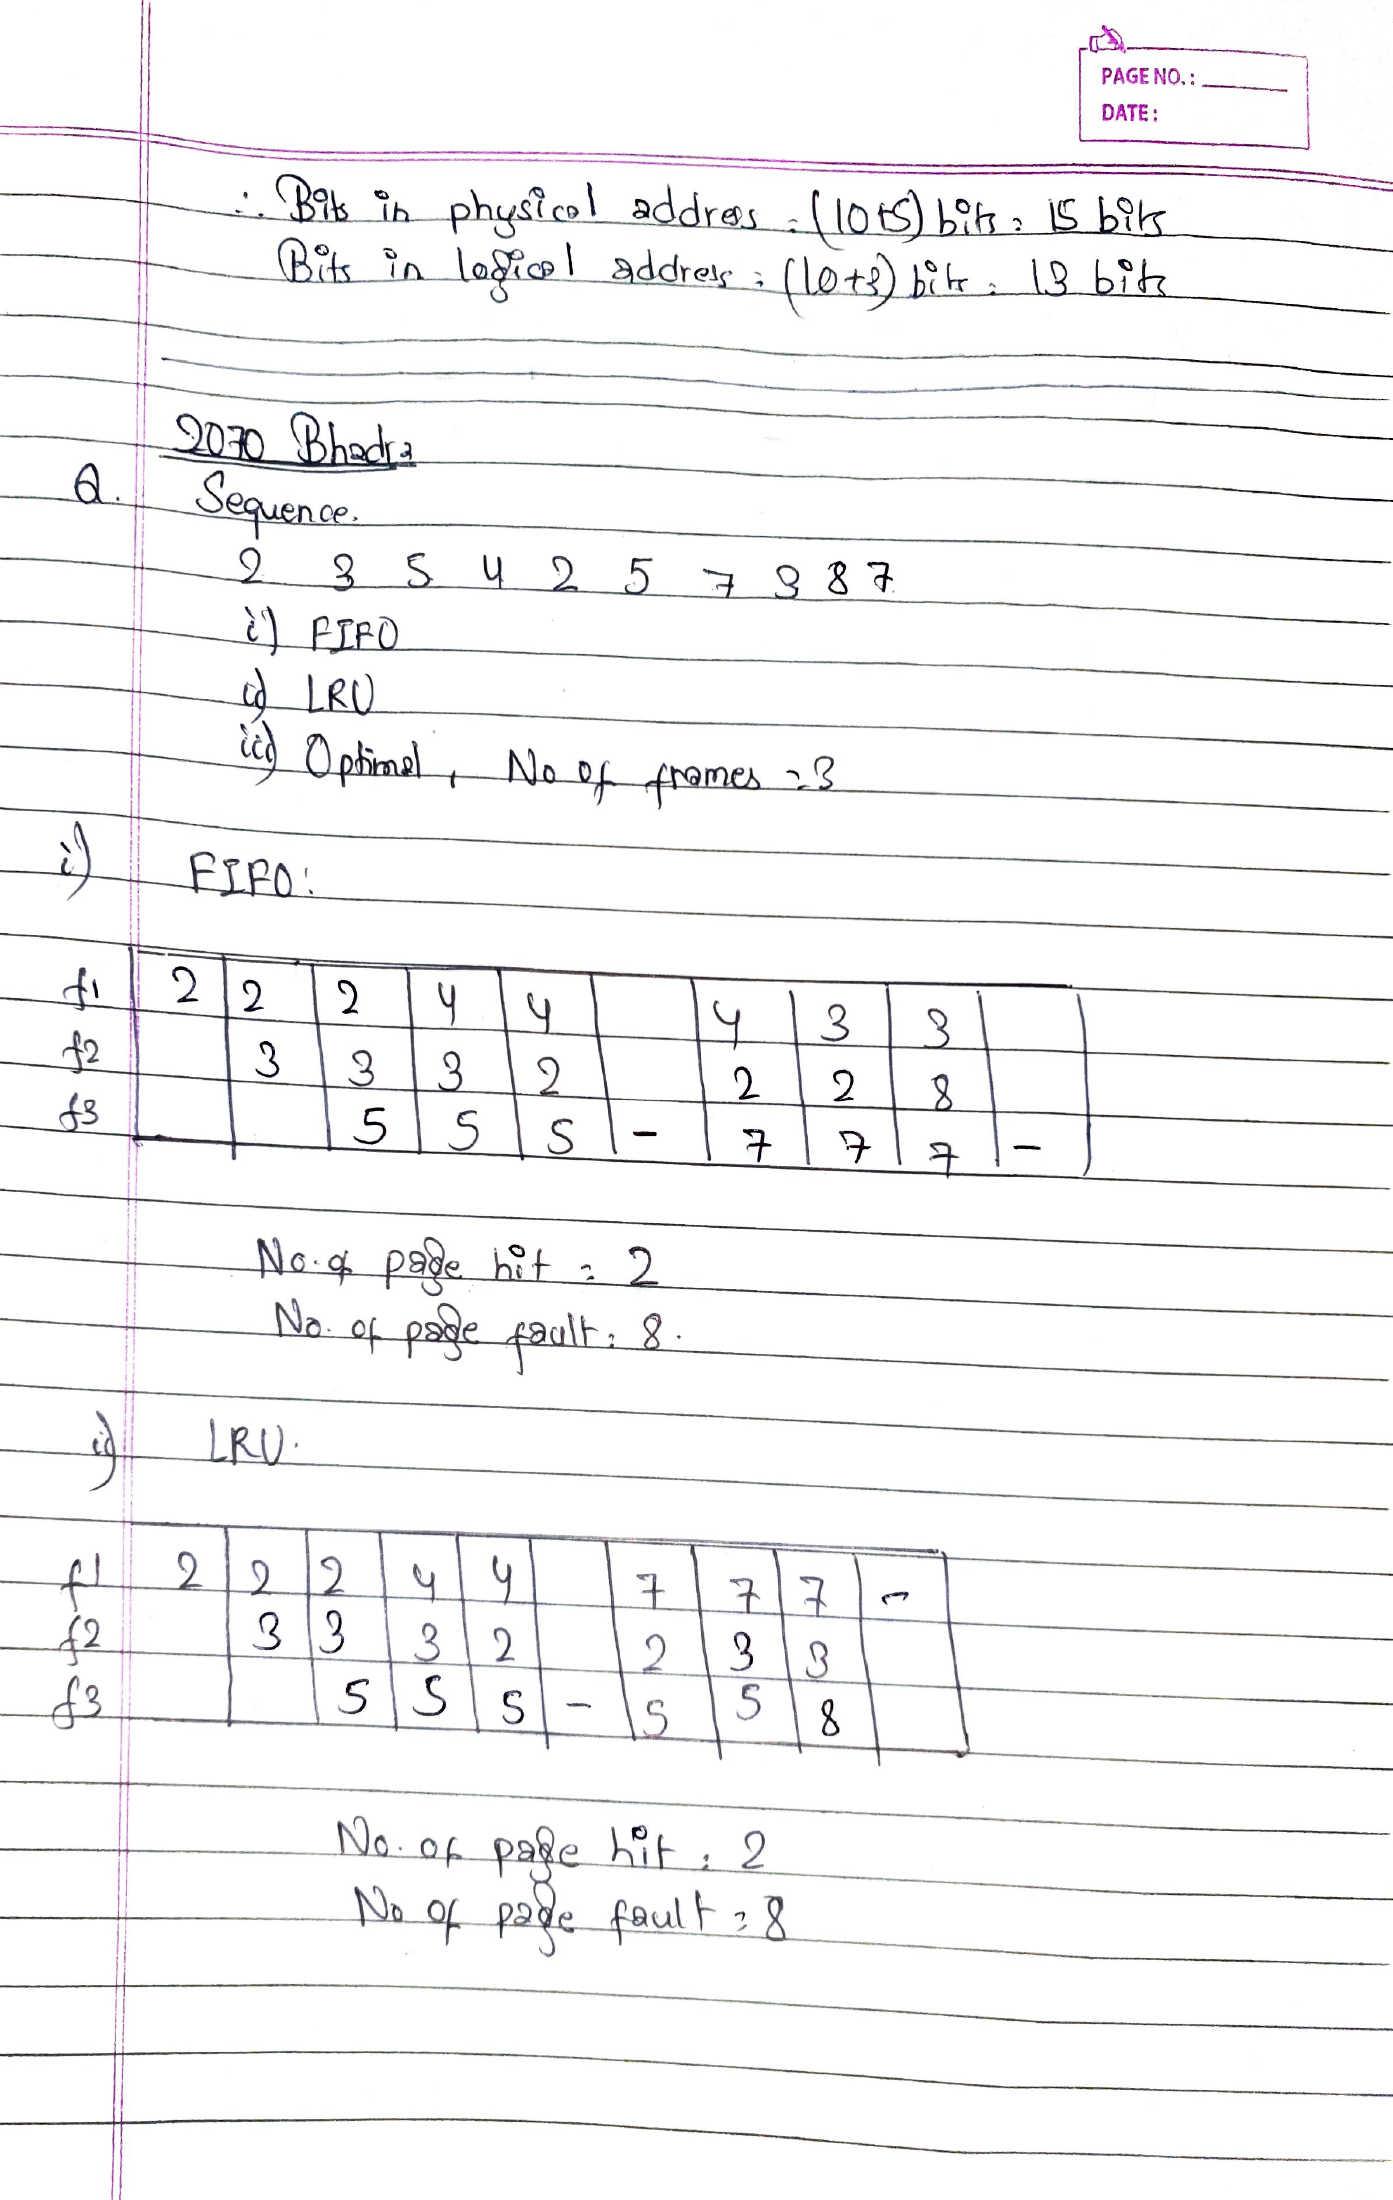 PAGE NO.:
DATE:
∴ Bits in physical address = (10+5) bits = 15 bits
Bits in logical address = (10+3) bits = 13 bits
2070 Bhadra
Q. Sequence.
2 3 5 4 2 5 7 3 8 7
i) FIFO
ii) LRU
iii) Optimal, No of frames = 3
i) FIFO:
f1 2 2 2 4 4 4 3 3
f2 3 3 3 2 2 2 8
f3 5 5 5 - 7 7 7 -
No. of page hit = 2
No. of page fault = 8.
ii) LRU.
f1 2 2 2 4 4 7 7 7 -
f2 3 3 3 2 2 3 3
f3 5 5 5 - 5 5 8
No. of page hit = 2
No of page fault = 8